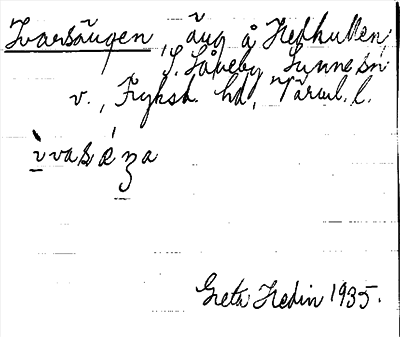 Ivarsängen, äng å Hedkullen,
S. Låbeby Sunne sn
v., Fryksd. hd, Värml. l.
ìvasǽŋa
Greta Hedin 1935.